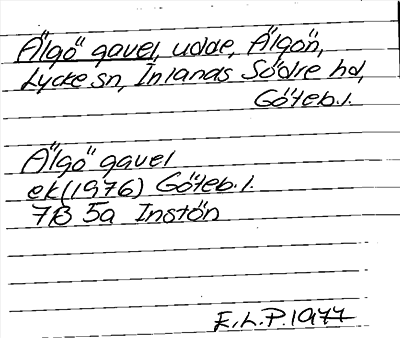 Älgö gavel, udde, Älgön,
Lycke sn, Inlands Södre hd,
Göteb. l.
Älgö gavel
ek(1976) Göteb. l.
7B 5a Instön
E.L.P. 1977